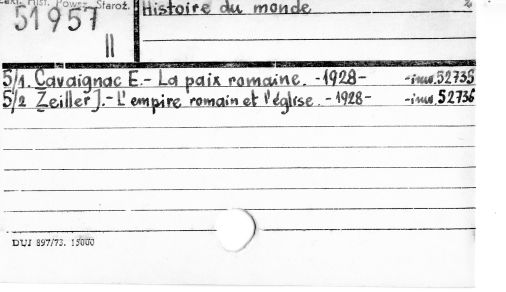 Hist. Powsz. Staroż.
Histoire du monde 2
51957
II
5/1. Cavaignac E. - La paix romaine. - 1928 - - inw. 52735
5/2 Zeiller J. - L'empire romain et l'église. - 1928 - - inw. 52736
DUJ 897/73. 15000